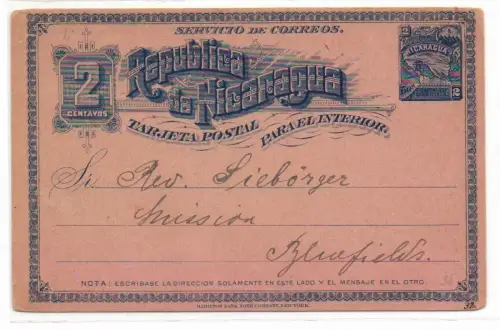 SERVICIO DE CORREOS.
2
CENTAVOS
Republica
de Nicaragua
TARJETA POSTAL PARA EL INTERIOR.
NICARAGUA
2 2
Sr. Rev. Siebörger
Mission
Bluefields.
NOTA: ESCRIBASE LA DIRECCION SOLAMENTE EN ESTE LADO Y EL MENSAJE EN EL OTRO.
HAMILTON BANK NOTE COMPANY, NEW YORK.